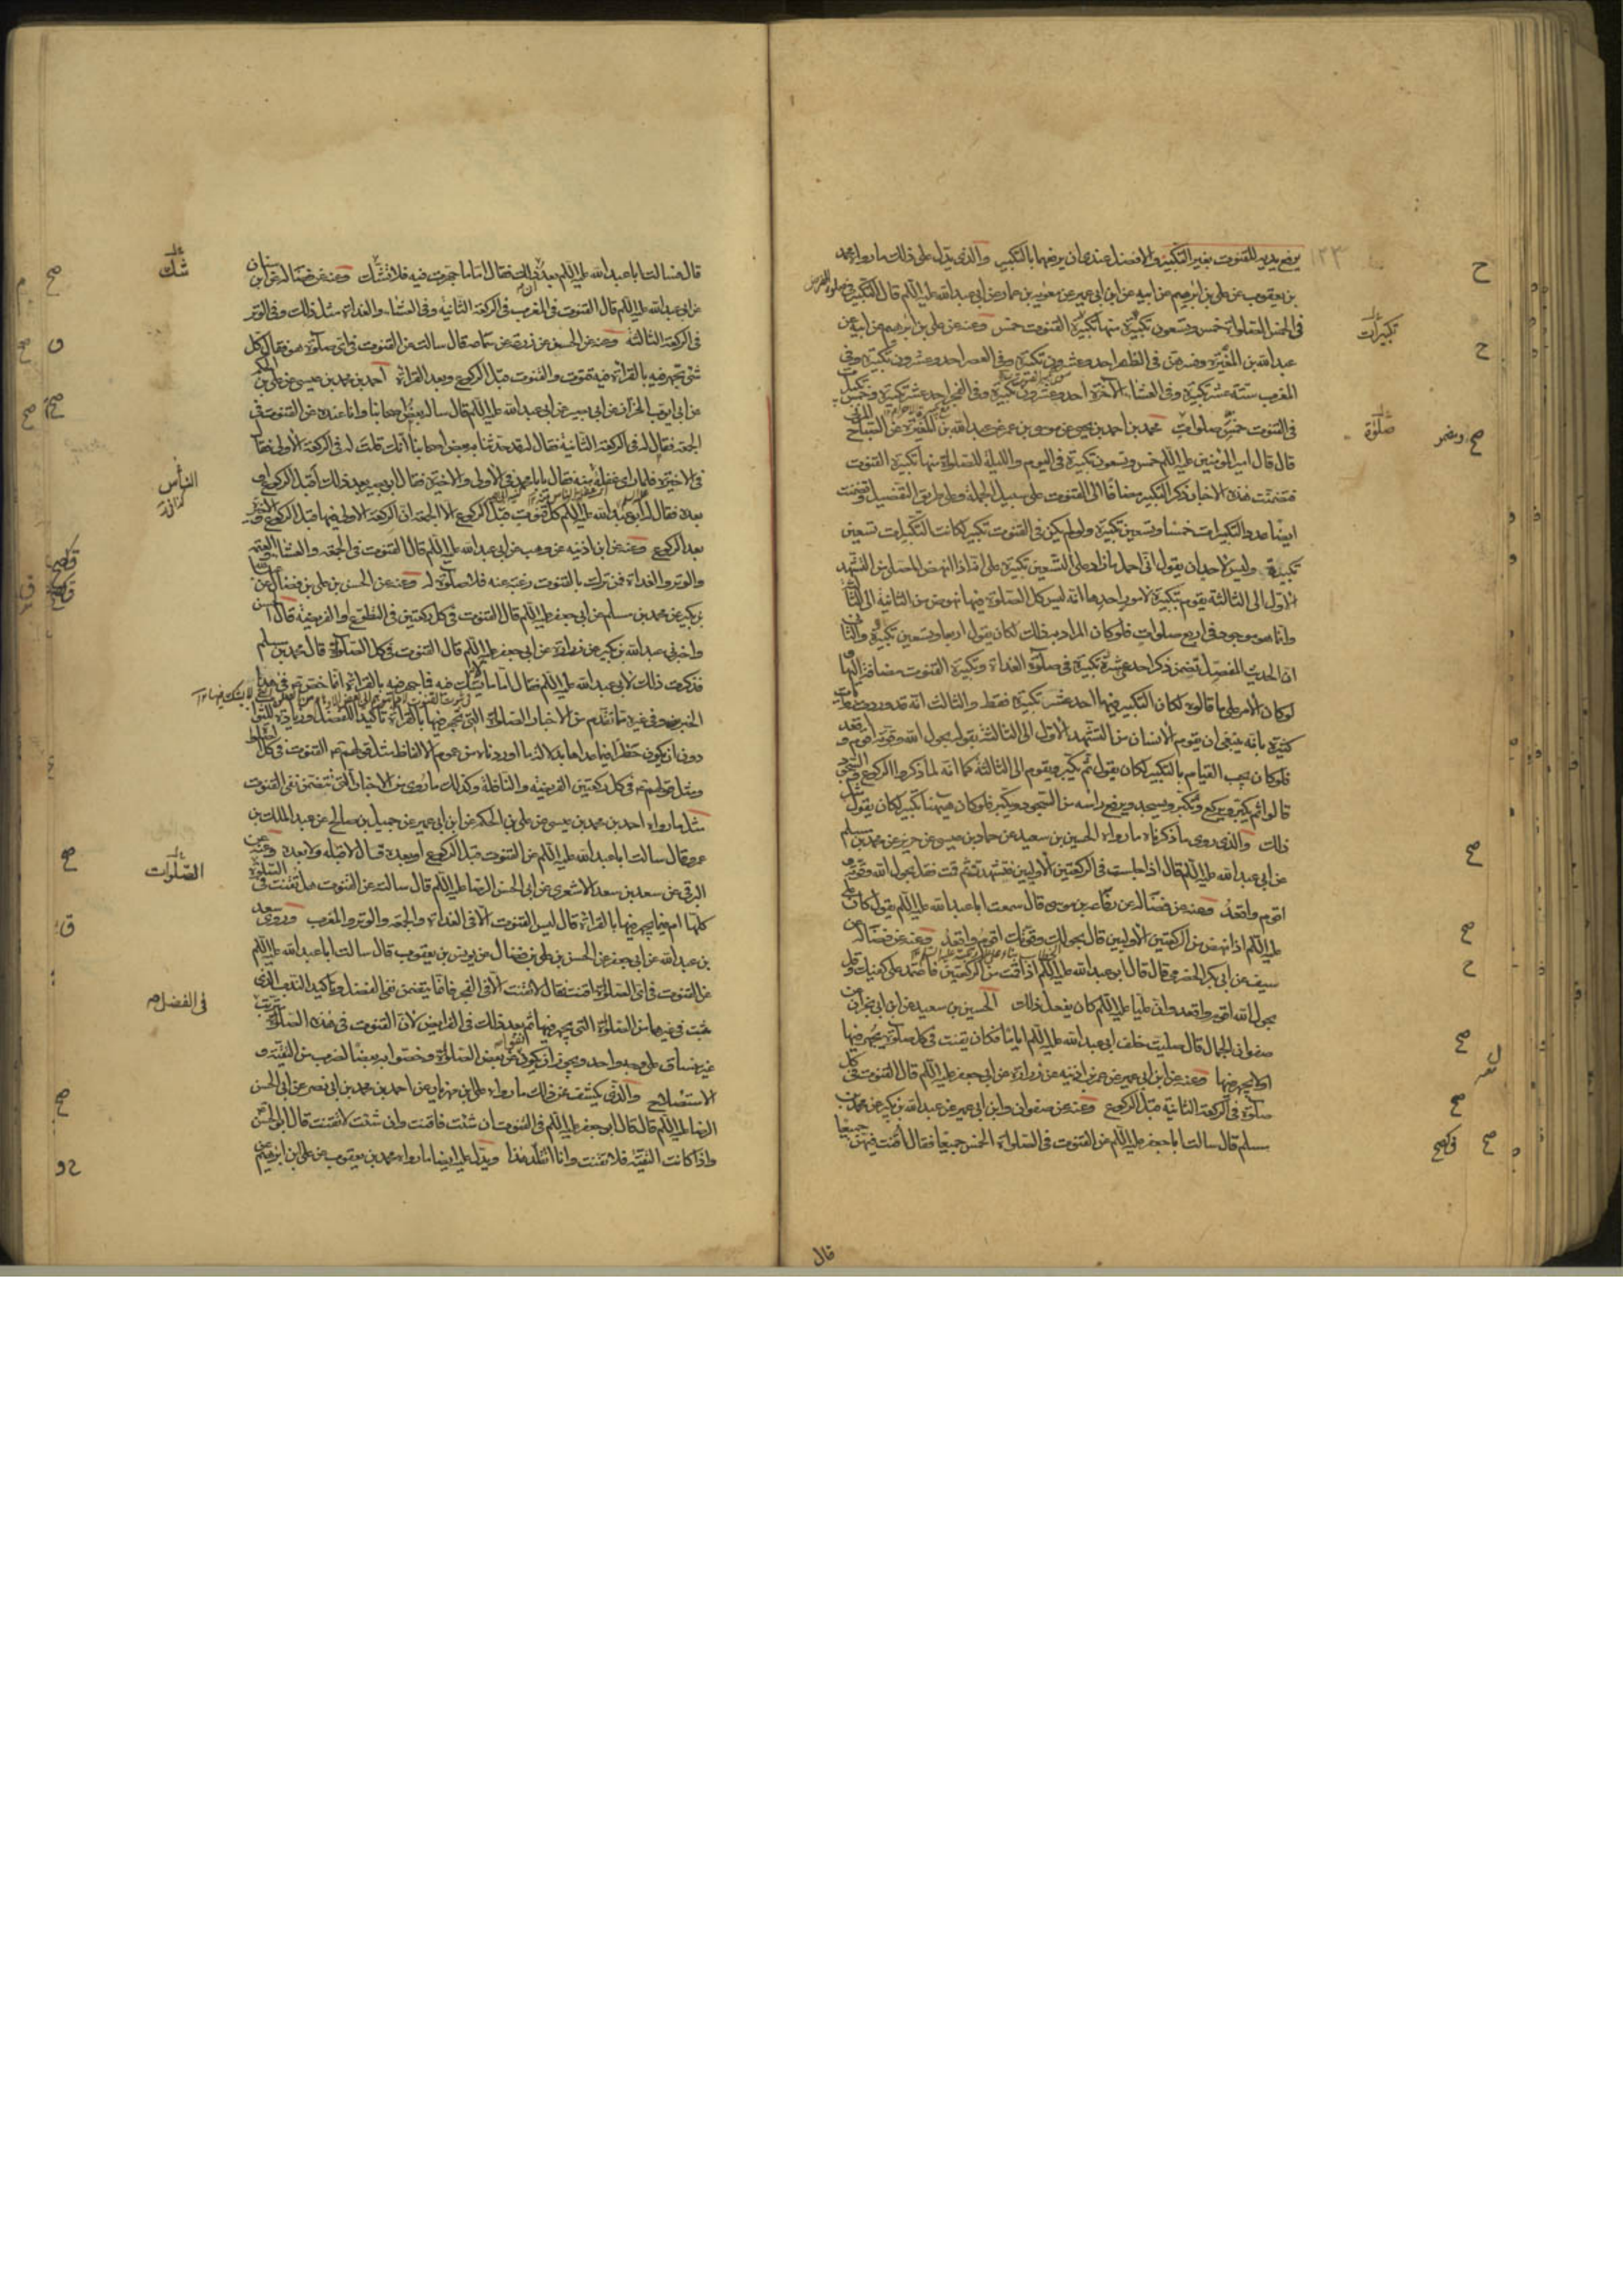 ١٢٣
يرفع يديه للقنوت بغير التكبير والافضل عندي ان يرفعها بالتكبير والذي يدل على ذلك ما رواه محمد
بن يعقوب عن علي بن ابرهيم عن ابيه عن ابن ابي عمير عن معوية بن عمار عن ابي عبد الله عليه السلم قال التكبير في صلوة الفرض
في الخمس الصلوات خمس وتسعون تكبيرة منها تكبيرة القنوت خمس وعنه عن علي بن ابرهيم عن ابيه عن
عبد الله بن المغيرة وفسرهن في الظهر احد وعشرون تكبيرة وفي العصر احد وعشرون تكبيرة وفي
المغرب ستة عشر تكبيرة وفي العشاء الآخرة احد وعشرون تكبيرة وفي الفجر احد عشر تكبيرة وخمس تكبيرات
في القنوت خمس صلوات محمد بن احمد بن يحيى عن موسى بن عمر عن عبد الله بن المغيرة عن الصباح المزني
قال قال امير المؤمنين عليه السلم خمس وتسعون تكبيرة في اليوم والليلة للصلوات منها تكبيرة القنوت
فتضمنت هذه الاخبار ذكر التكبير مضافا الى القنوت على سبيل الجملة وعلى طريق التفصيل وتضمنت
ايضا عدد التكبيرات خمسا وتسعين تكبيرة ولو لم يكن في القنوت تكبير لكانت التكبيرات تسعين
تكبيرة وليس لاحد ان يقول انني احمل ما زاد على التسعين تكبيرة على انه اذا نهض المصلي من التشهد
الاول الى الثالثة يقوم بتكبيرة لامور احدها انه ليس كل الصلوة فيها نهوض من الثانية الى الثالثة
وانما هو موجود في اربع صلوات فلو كان المراد به ذلك لكان يقول اربعا وتسعين تكبيرة والثاني
ان الحديث المفصل تضمن ذكر احد عشرة تكبيرة في صلوة الغداة وتكبيرة القنوت مضافة اليها
لو كان الامر على ما قالوه لكان التكبير فيها احد عشر تكبيرة فقط والثالث انه قد وردت روايات
كثيرة بانه ينبغي ان يقوم الانسان من التشهد الاول الى الثالثة بقوله بحول الله وقوته اقوم واقعد
فلو كان يجب القيام بالتكبير لكان يقول ثم يكبر ويقوم الى الثالثة كما انه لما ذكروا الركوع والسجود
قالوا ثم يكبر ويركع ويكبر ويسجد ويرفع راسه من السجود ويكبر فلو كان ههنا تكبير لكان يقول مثل
ذلك والذي روى ما ذكرناه ما رواه الحسين بن سعيد عن حماد بن عيسى عن حريز عن محمد بن مسلم
عن ابي عبد الله عليه السلم قال اذا جلست في الركعتين الاوليين فتشهدت ثم قمت فقل بحول الله وقوته
اقوم واقعد وعنه عن فضالة عن رفاعة بن موسى قال سمعت ابا عبد الله عليه السلم يقول كان علي
عليه السلم اذا نهض من الركعتين الاوليين قال بحولك وقوتك اقوم واقعد وعنه عن فضالة عن
سيف عن ابي بكر الحضرمي قال قال ابو عبد الله عليه السلم اذا قمت من الركعتين فاعتمد على كفيك وقل
بحول الله اقوم واقعد وان عليا عليه السلم كان يفعل ذلك الحسين بن سعيد عن ابن ابي نجران عن
صفوان الجمال قال صليت خلف ابي عبد الله عليه السلم اياما فكان يقنت في كل صلوة يجهر فيها
او لا يجهر فيها وعنه عن ابن ابي عمير عن عمر بن اذينة عن زرارة عن ابي جعفر عليه السلم قال القنوت في كل
صلوة في الركعة الثانية قبل الركوع وعنه عن صفوان وابن ابي عمير عن عبد الله بن بكير عن محمد بن
مسلم قال سالت ابا جعفر عليه السلم عن القنوت في الصلوات الخمس جميعا فقال اقنت فيهن جميعا
قال
تكبيرات
صلوة
قال فسالت ابا عبد الله عليه السلم بعد ذلك فقال اما ما جهرت فيه فلا تشك وعنه عن فضالة عن ابن سنان
عن ابي عبد الله عليه السلم قال القنوت في المغرب في الركعة الثانية وفي العشاء والغداة مثل ذلك وفي الوتر
في الركعة الثالثة وعنه عن الحسن عن زرعة عن سماعة قال سالت عن القنوت في اي صلوة هو فقال كل
شئ يجهر فيه بالقراءة فيه قنوت والقنوت قبل الركوع وبعد القراءة احمد بن محمد بن عيسى عن علي بن الحكم
عن ابي ايوب الخزاز عن ابي بصير عن ابي عبد الله عليه السلم قال ساله بعض اصحابنا وانا عنده عن القنوت في
الجمعة فقال له في الركعة الثانية فقال له قد حدثنا به بعض اصحابنا انك قلت له في الركعة الاولى فقال
في الاخيرة فلما راى غفلة منه فقال يا با محمد في الاولى والاخيرة فقال ابو بصير بعد ذلك أقبل الركوع او
بعده فقال له ابو عبد الله عليه السلم كل قنوت قبل الركوع الا الجمعة فان الركعة الاولى فيها قبل الركوع والاخيرة
بعد الركوع وعنه عن ابن اذينة عن وهب عن ابي عبد الله عليه السلم قال القنوت في الجمعة والعشاء والعتمة
والوتر والغداة فمن ترك القنوت رغبة عنه فلا صلوة له وعنه عن الحسن بن علي بن فضال عن
بن بكير عن محمد بن مسلم عن ابي جعفر عليه السلم قال القنوت في كل ركعتين في التطوع او الفريضة قال الحسن
واخبرني عبد الله بن بكير عن زرارة عن ابي جعفر عليه السلم قال القنوت في كل الصلوة قال محمد بن مسلم
فذكرت ذلك لابي عبد الله عليه السلم فقال اما ما لا يشك فيه فما جهر فيه بالقراءة
دون ان يكون حظرا فيما عداها بدلالة ما اوردناه من عموم الالفاظ مثل قولهم القنوت في كل
ومثل قولهم في كل ركعتين الفريضة والنافلة وكذلك ما روي من الاخبار التي تتضمن نفي القنوت
مثل ما رواه احمد بن محمد بن عيسى عن علي بن الحكم عن ابن ابي عمير عن جميل بن صالح عن عبد الملك بن
عمرو قال سالت ابا عبد الله عليه السلم عن القنوت قبل الركوع او بعده قال لا قبله ولا بعده وعنه عن
البرقي عن سعد بن سعد الاشعري عن ابي الحسن الرضا عليه السلم قال سالت عن القنوت هل يقنت في الصلوة
كلها ام فيما يجهر فيها بالقراءة قال ليس القنوت الا في الغداة والجمعة والوتر والمغرب وروى سعد
بن عبد الله عن ابي جعفر عن الحسن بن علي بن فضال عن يونس بن يعقوب قال سالت ابا عبد الله عليه السلم
عن القنوت في اي الصلوة اقنت فقال لا تقنت الا في الفجر فانما يتضمن نفي الفضل وتاكيد الندب الذي
ثبت في غيرها من الصلوة التي يجهر فيها ثم بعد ذلك في الفرايض لان القنوت في هذه الصلوة
غير مساق على وجه واحد ويجوز ان يكون عن بعض الصلوة وخصوا به بعضا لضرب من التقية و
الاستصلاح والذي يكشف عن ذلك ما رواه علي بن مهزيار عن احمد بن محمد بن ابي نصر عن ابي الحسن
الرضا عليه السلم قال قال ابو جعفر عليه السلم في القنوت ان شئت فاقنت وان شئت لا تقنت قال ابو الحسن
واذا كانت التقية فلا تقنت وانا اتقلد هذا ويدل عليه ايضا ما رواه محمد بن يعقوب عن علي بن ابرهيم
شك
الناس
الصلوات
في الفضل